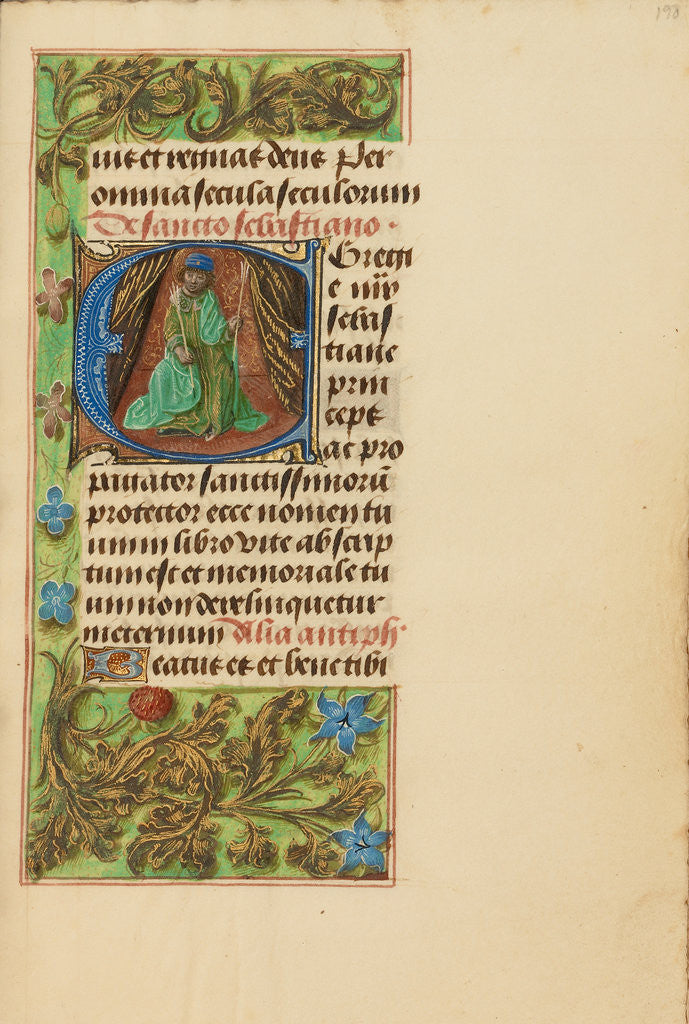 190
uiuet et regnat deus Per
omnia secula seculorum
De sancto sebastiano.
Egregi
e mr̄
sebas
tiane
prin
ceps
ac pro
pītiator sanctissimorū
protector ecce nomen tu
um in libro vite ab scrip
tum est et memoriale tu
um non derelinquetur
in eternum Alia antiph.
Beatus es et bene tibi